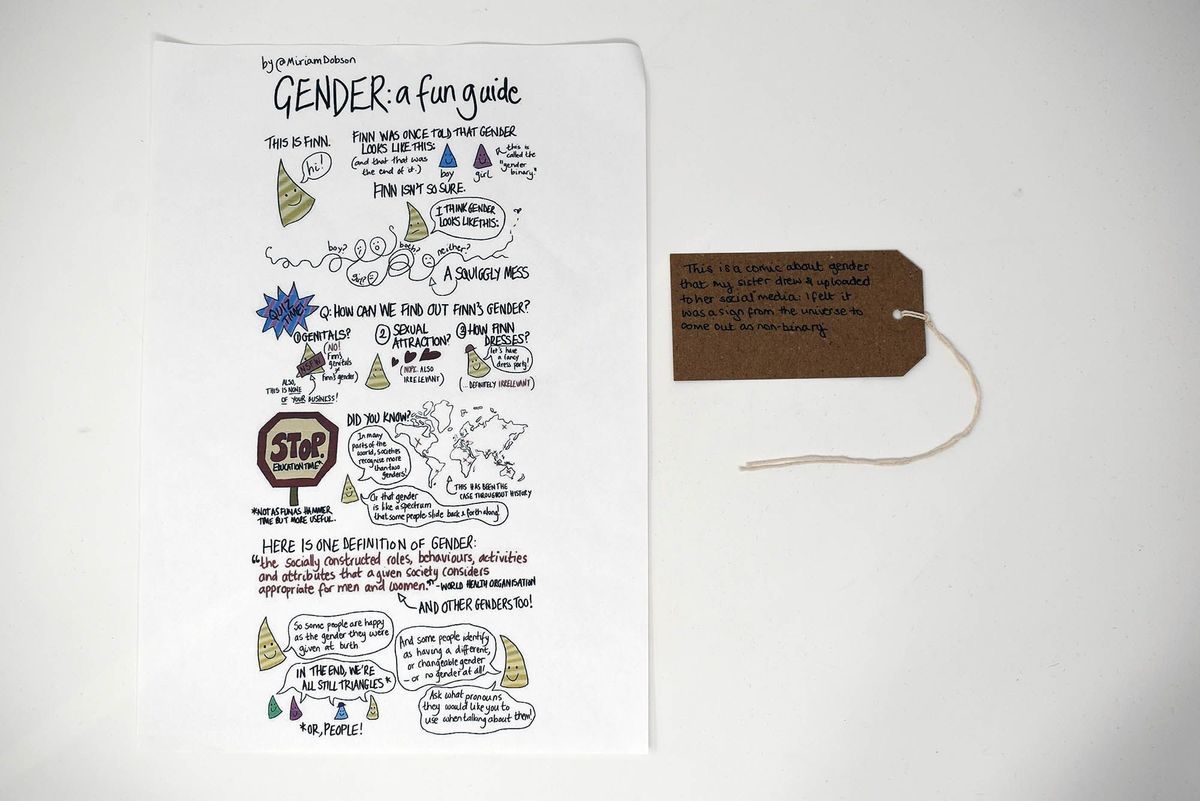 by @MiriamDobson
GENDER: a fun guide
THIS IS FINN.
hi!
FINN WAS ONCE TOLD THAT GENDER
LOOKS LIKE THIS:
(and that that was
the end of it.)
boy
girl
this is
called the
"gender
binary"
FINN ISN'T SO SURE.
I THINK GENDER
LOOKS LIKE THIS:
boy?
girl?
both?
neither?
A SQUIGGLY MESS
QUIZ
TIME!
Q: HOW CAN WE FIND OUT FINN'S GENDER?
① GENITALS?
NSFW
(NO!
Finn's
genitals
≠
Finn's gender)
ALSO,
THIS IS NONE
OF YOUR BUSINESS!
② SEXUAL
ATTRACTION?
(NOPE. ALSO
IRRELEVANT)
③ HOW FINN
DRESSES?
let's have
a fancy
dress party!
(... DEFINITELY IRRELEVANT)
STOP.
EDUCATION TIME*
*NOT AS FUN AS HAMMER
TIME BUT MORE USEFUL.
DID YOU KNOW?
In many
parts of the
world, societies
recognise more
than two
genders!
THIS HAS BEEN THE
CASE THROUGHOUT HISTORY
Or that gender
is like a spectrum
that some people slide back & forth along!
HERE IS ONE DEFINITION OF GENDER:
"the socially constructed roles, behaviours, activities
and attributes that a given society considers
appropriate for men and women." -WORLD HEALTH ORGANISATION
AND OTHER GENDERS TOO!
So some people are happy
as the gender they were
given at birth
And some people identify
as having a different,
or changeable gender
- or no gender at all!
IN THE END, WE'RE
ALL STILL TRIANGLES*
*OR, PEOPLE!
Ask what pronouns
they would like you to
use when talking about them!
This is a comic about gender
that my sister drew & uploaded
to her social media. I felt it
was a sign from the universe to
come out as non-binary